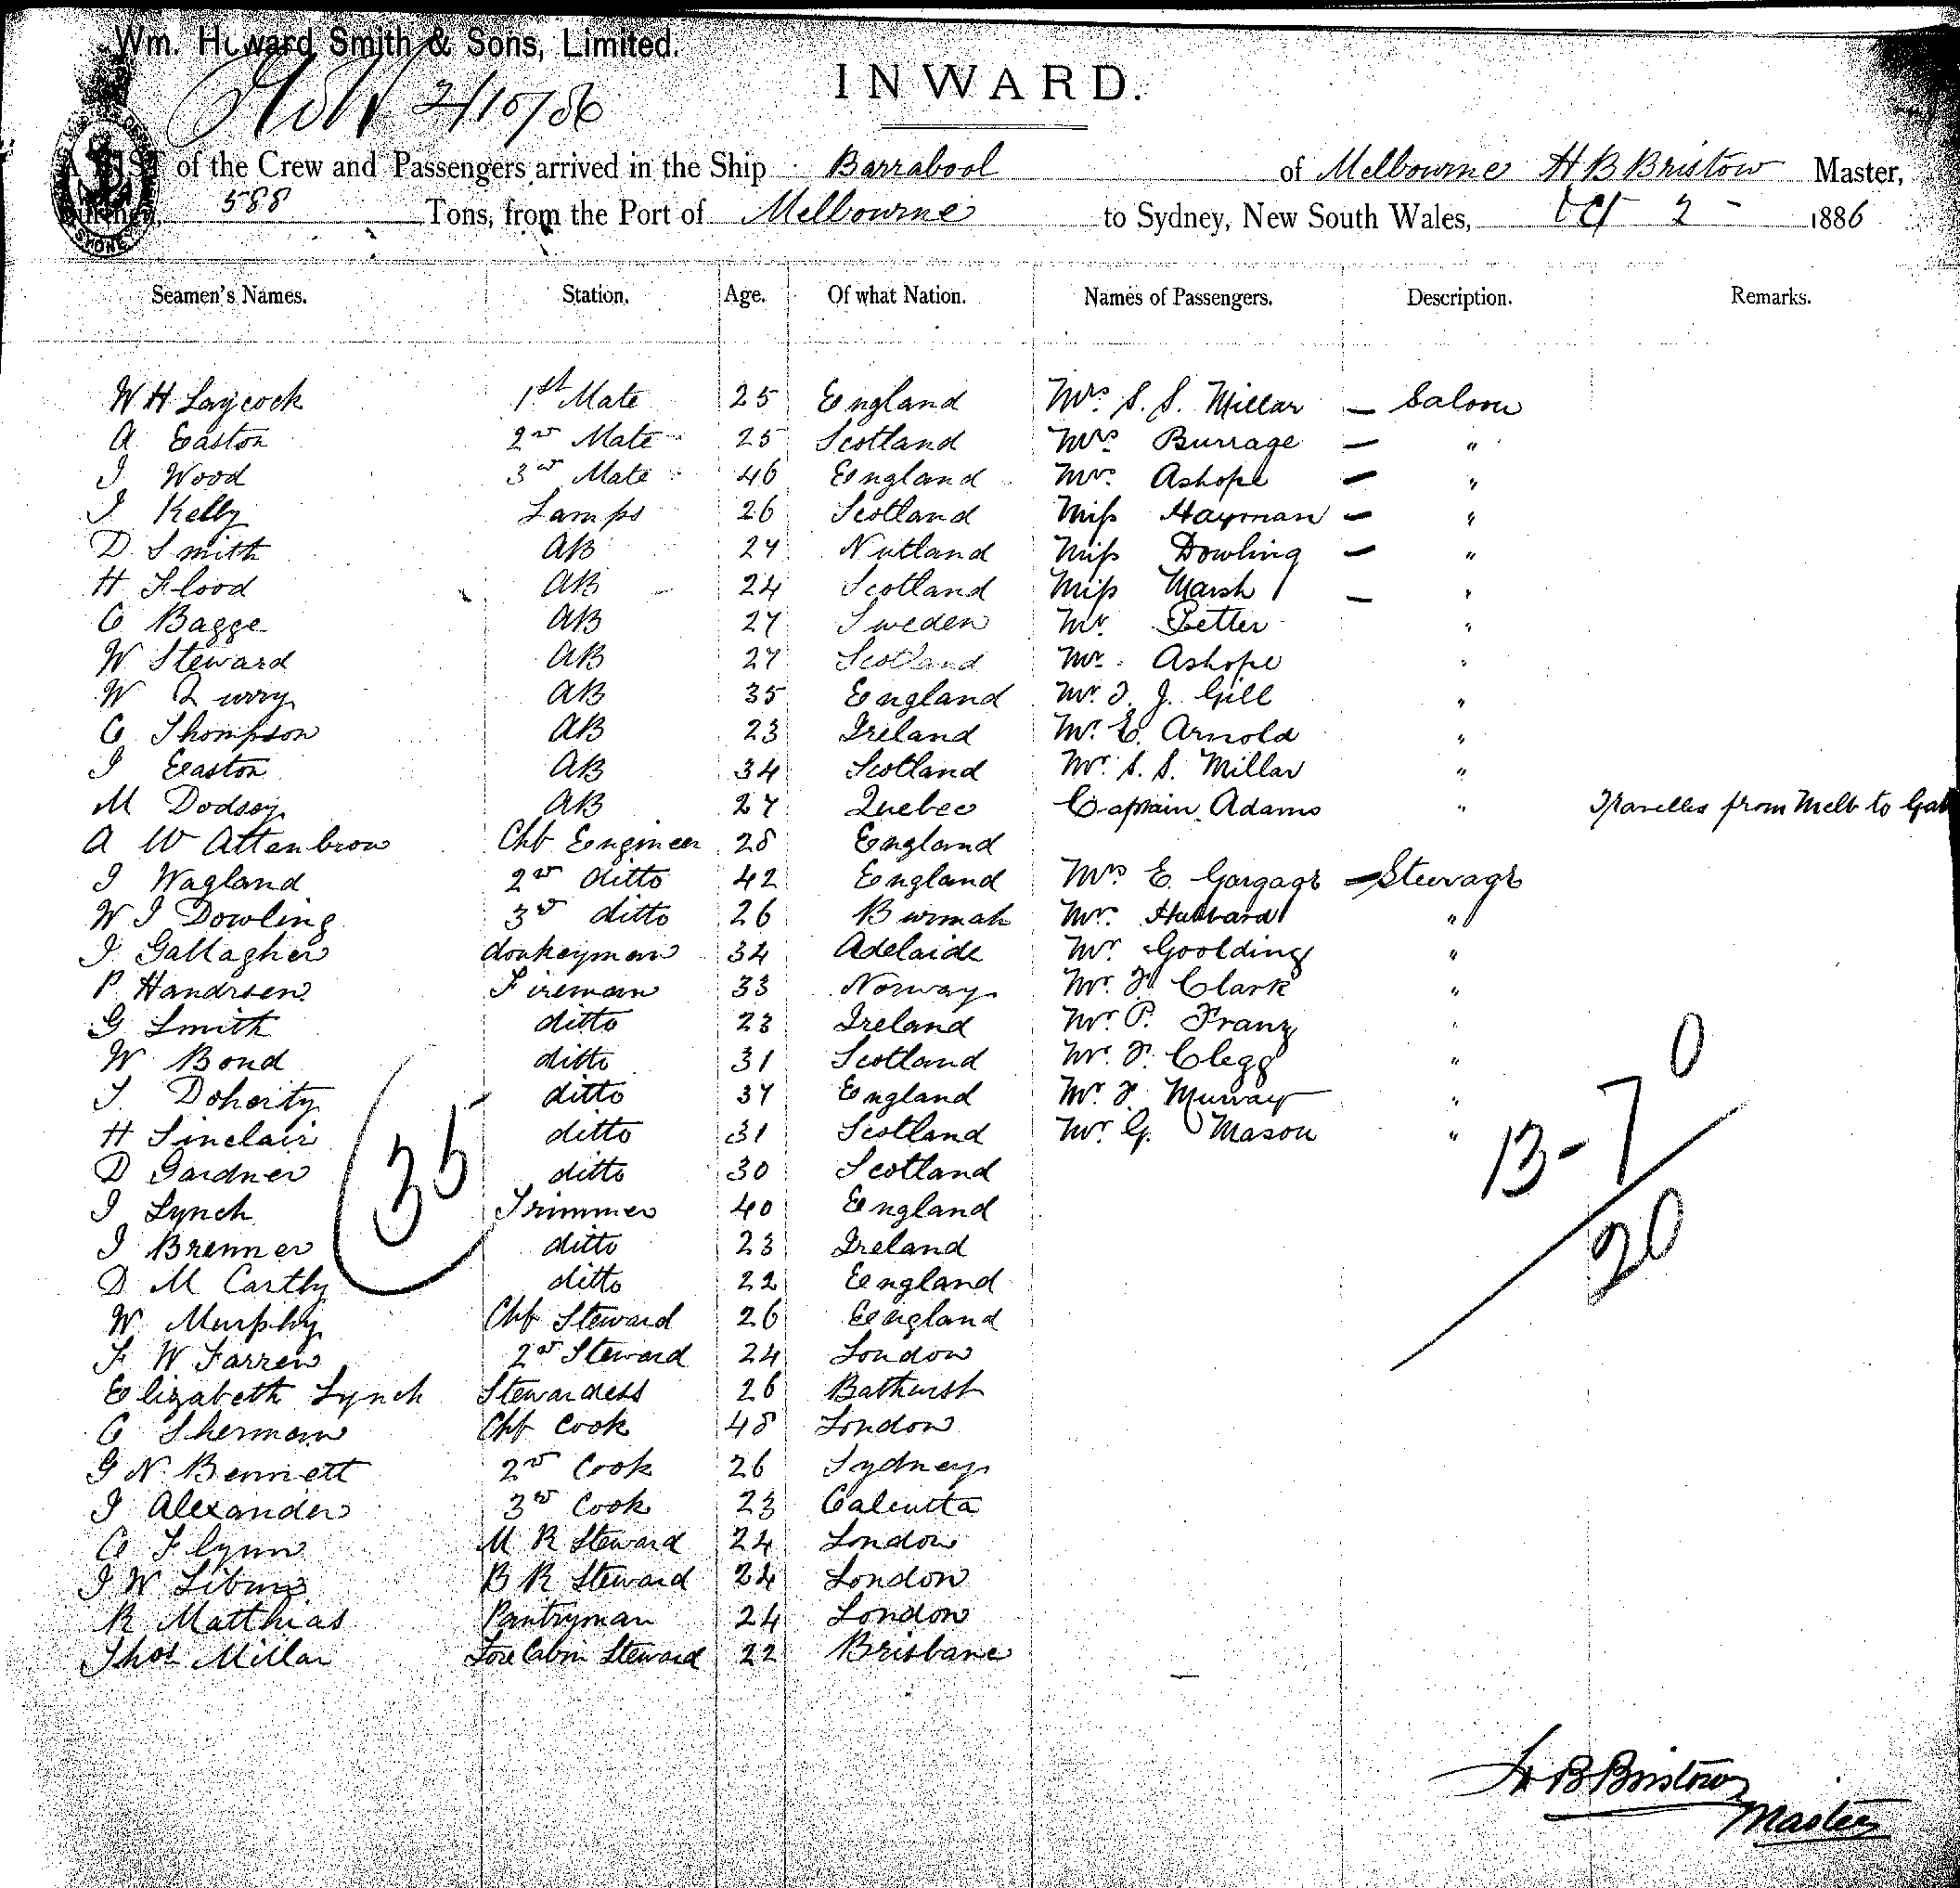 Wm. Howard Smith & Sons, Limited.
2/10/86
INWARD.
A LIST of the Crew and Passengers arrived in the Ship Barrabool of Melbourne H B Bristow Master,
Burthen, 588 Tons, from the Port of Melbourne to Sydney, New South Wales, Oct 2 - 1886
Seamen's Names. Station. Age. Of what Nation. Names of Passengers. Description. Remarks.
W H Laycock 1st Mate 25 England Mrs. S. S. Millar — Saloon
A Easton 2nd Mate 25 Scotland Mrs Burrage — "
J Wood 3rd Mate 46 England Mrs. Ashope — "
J Kelly Lamps 26 Scotland Miss Hayman — "
D. Smith AB 27 Nutland Miss Dowling — "
H Flood AB 24 Scotland Miss Marsh — "
C Bagge AB 27 Sweden Mr. Petter "
W Steward AB 27 Scotland Mr. Ashope "
W AB 35 England Mr. J. J. Gill "
C Thompson AB 23 Ireland Mr. E. Arnold "
J Easton AB 34 Scotland Mr. S. S. Millar "
M Dodsoy AB 27 Quebec Captain Adams " Travelles from Melb to Gab
A W Attenbrow Chf Engineer 28 England
J Wagland 2nd ditto 42 England Mrs E. Gargage — Steerage
W J Dowling 3rd ditto 26 Burmah Mr. Hubbard "
J. Gallagher donkeyman 34 Adelaide Mr. Goolding "
P. Handrsen Fireman 33 Norway Mr. J Clark "
G Smith ditto 23 Ireland Mr. P. Franz "
W Bond ditto 31 Scotland Mr. J. Clegg "
J. Doherty ditto 37 England Mr. J. Murray "
H Sinclair ditto 31 Scotland Mr. G. Mason "
D Gardner ditto 30 Scotland
J Lynch Trimmer 40 England
J Brenner ditto 23 Ireland
D M Carthy ditto 22 England
W Murphy Chf Steward 26 England
F W Farren 2nd Steward 24 London
Elizabeth Lynch Stewardess 26 Bathurst
C Sherman Chf Cook 48 London
G N. Bennett 2nd Cook 26 Sydney
J Alexander 3rd Cook 23 Calcutta
C Flynn M R Steward 24 London
J W B R Steward 24 London
R Matthias Pantryman 24 London
Thos Millar Fore Cabin Steward 22 Brisbane
35
13 - 7 0
20
H B Bristow
Master